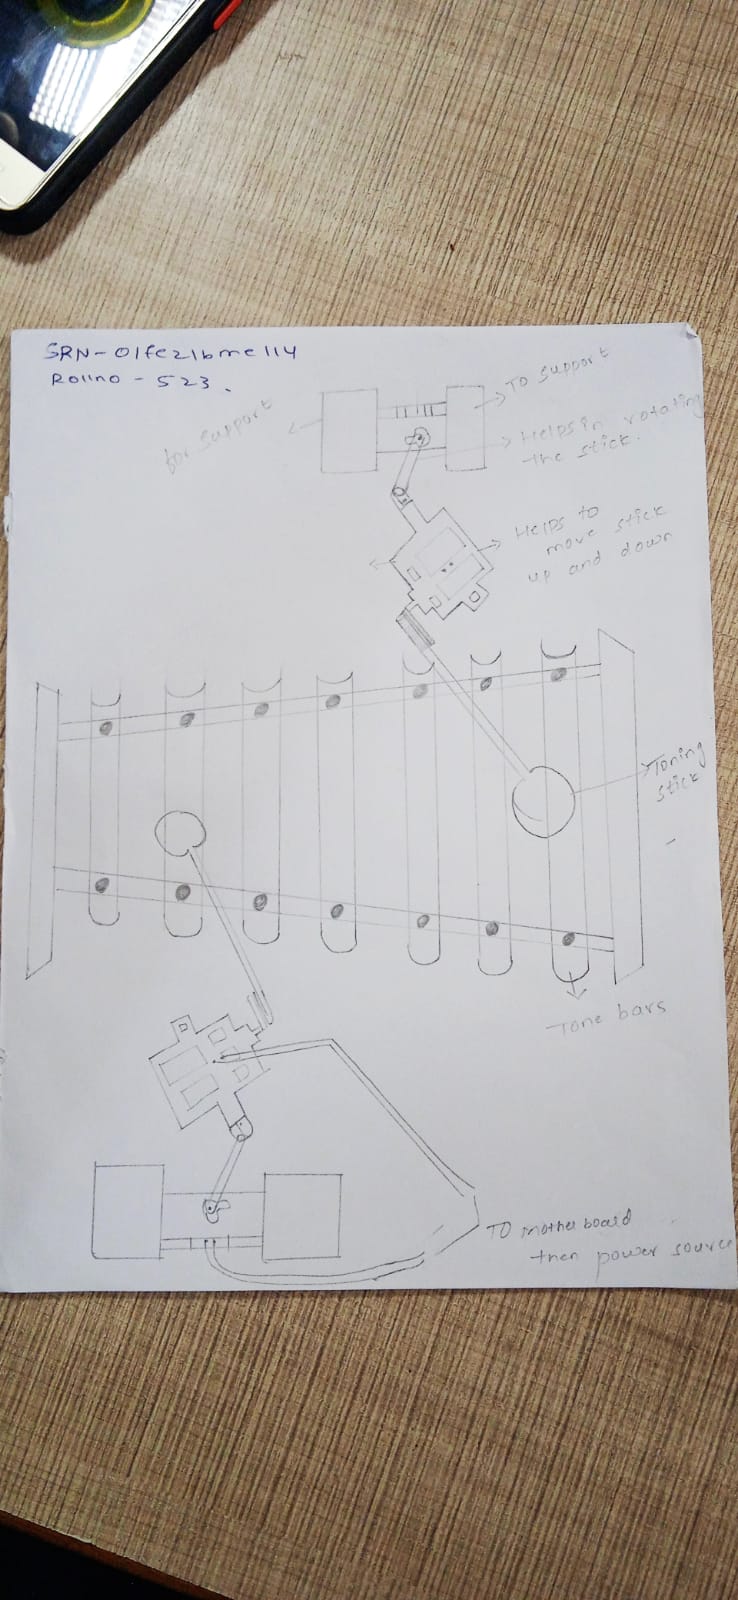 SRN-01fe21bme114
Rollno - 523.
for support
To support
Helps in rotating
the stick.
Helps to
move stick
up and down
Toning
stick
Tone bars
To mother board
then power source